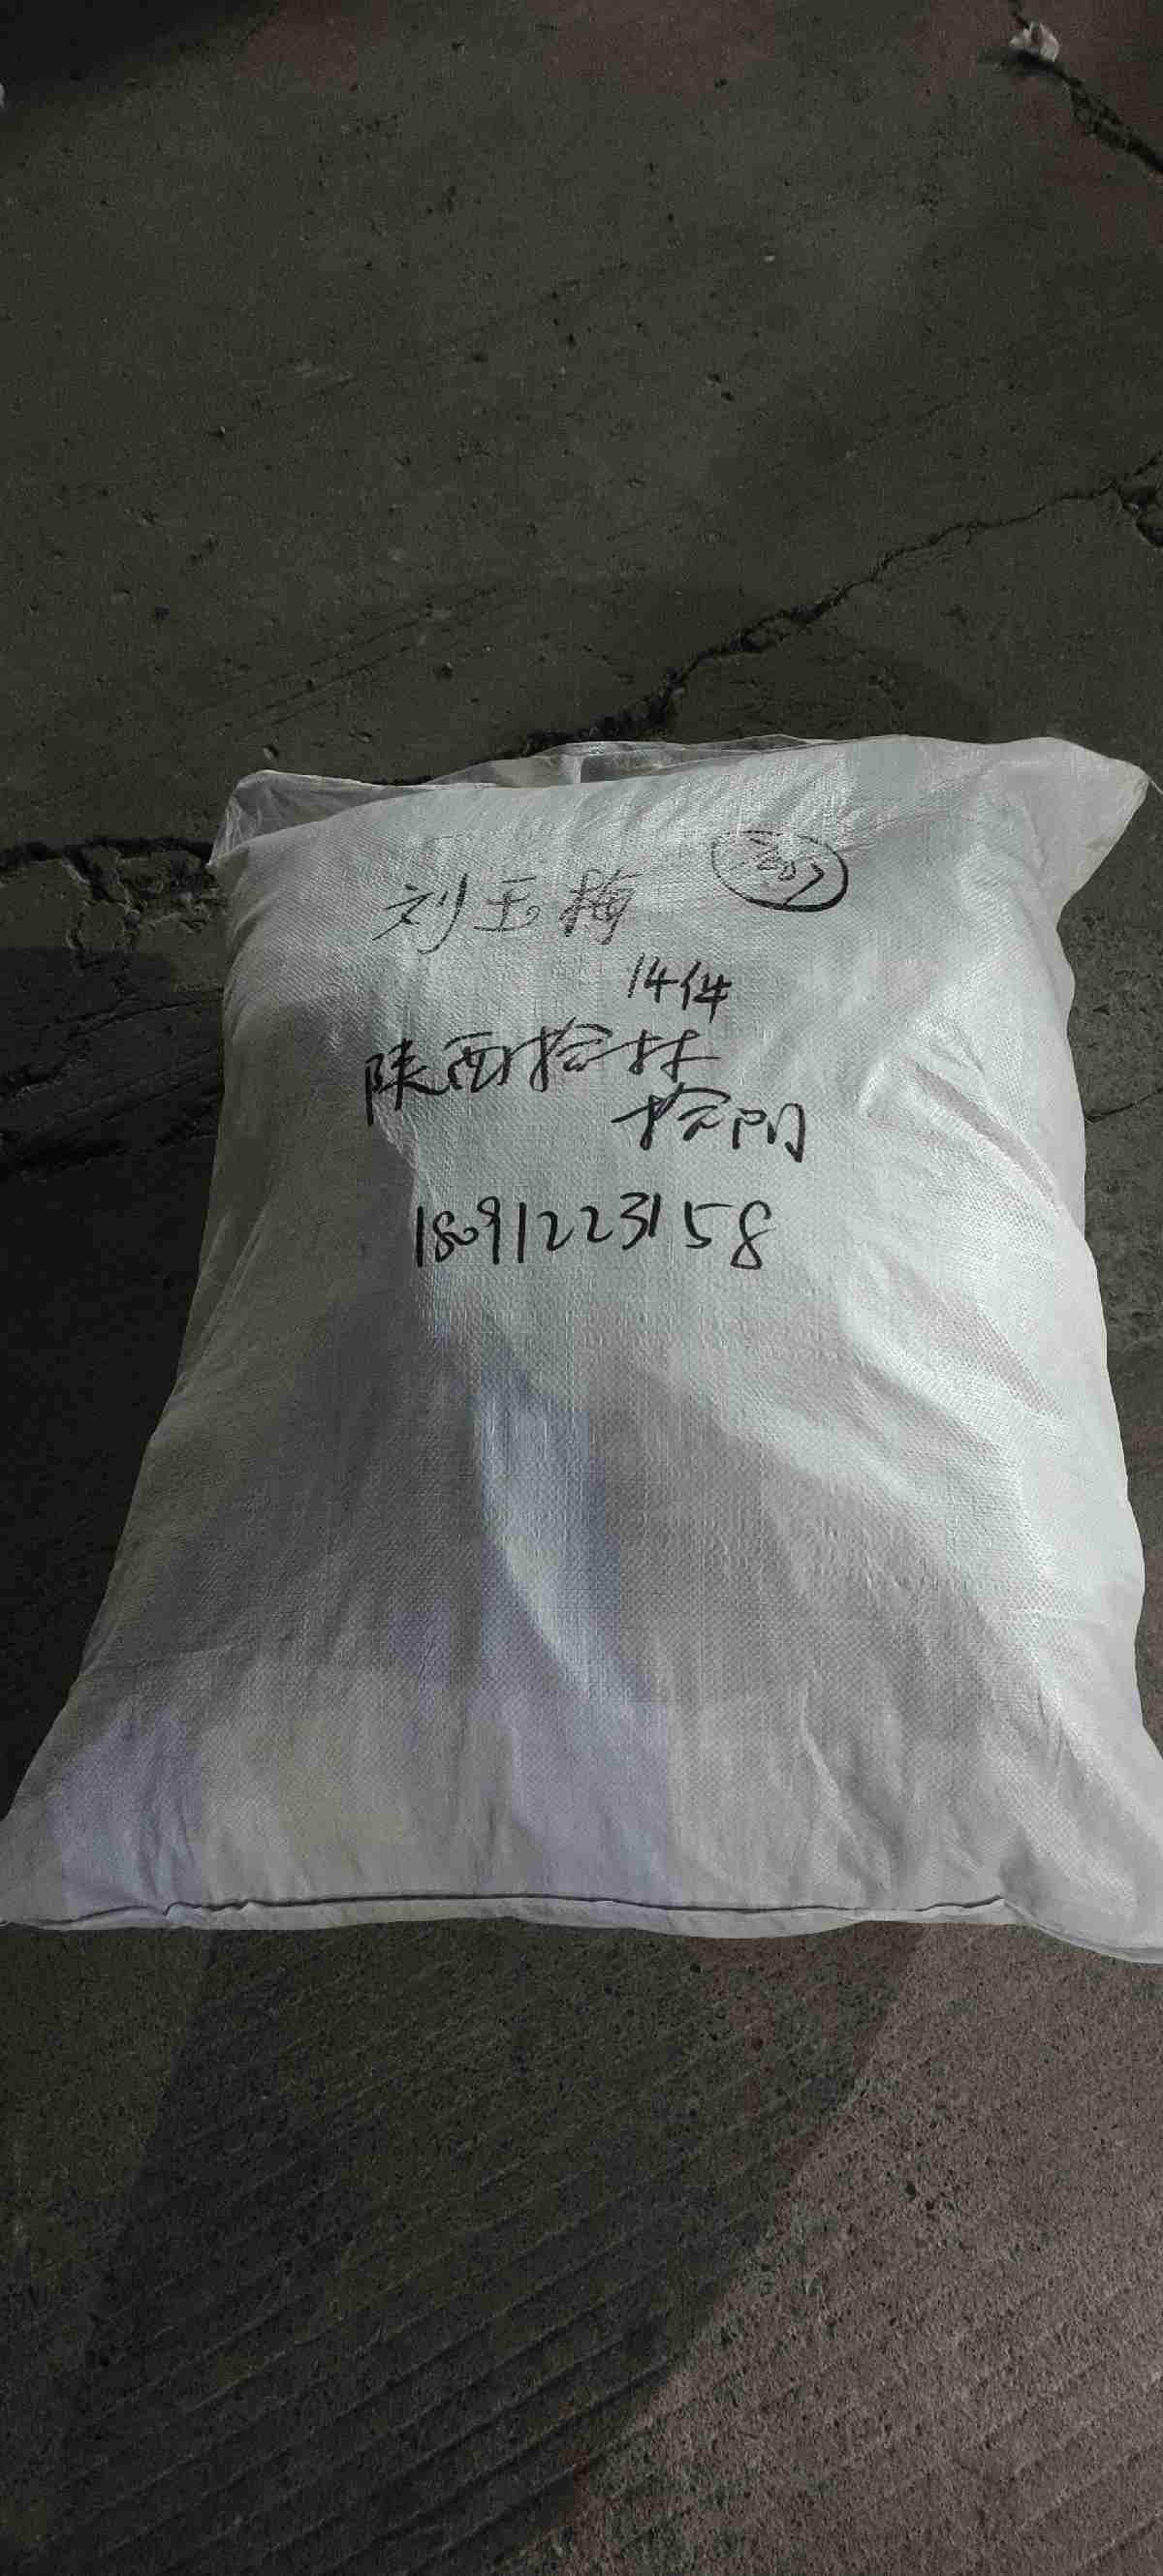 刘玉梅
14件
陕西榆林
榆阳
18091223158